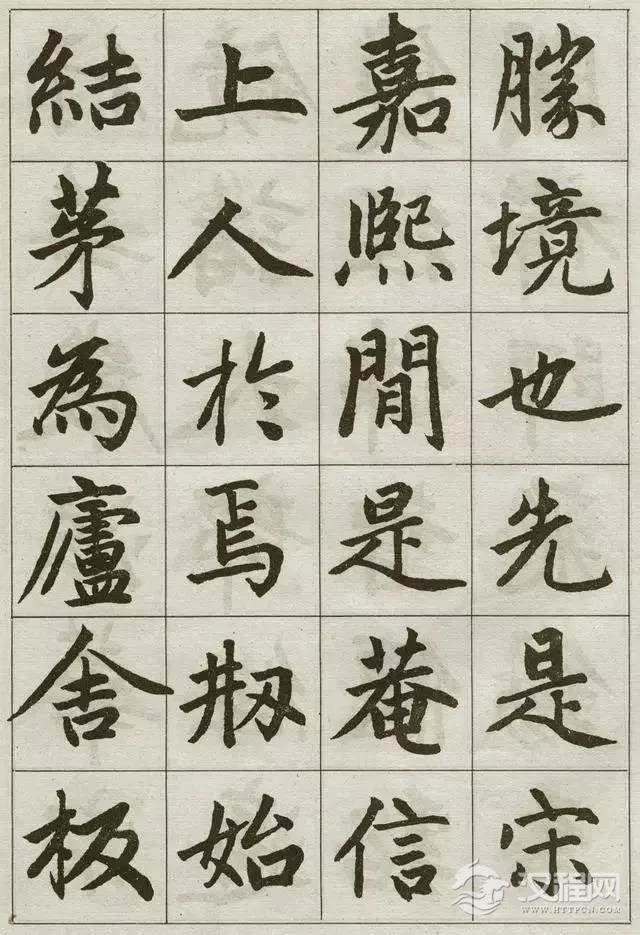 勝境也先是宋
嘉熙間是菴信
上人於焉刱始
結茅為廬舍板
汉程网
WWW.HTTPCN.COM